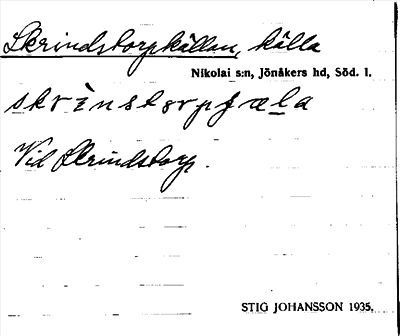 Skrindstorpkällan, källa
Nikolai s:n, Jönåkers hd, Söd. l.
skrìnstorpʃæla
Vid Skrindstorp.
STIG JOHANSSON 1935.